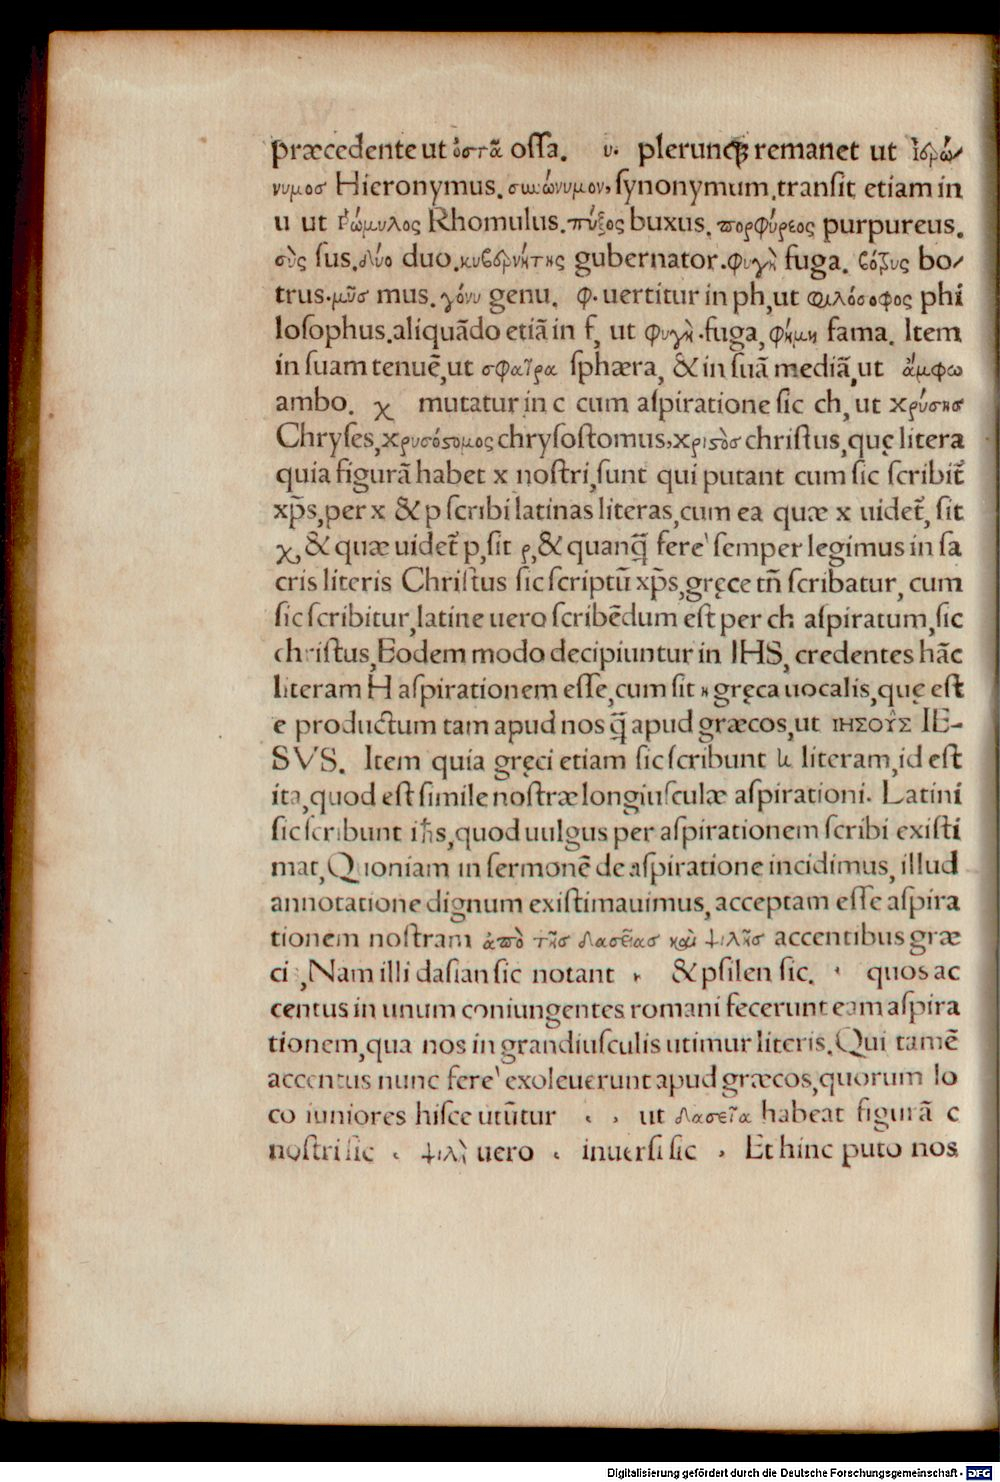 præcedente ut ὀστᾶ oſſa. υ. plerunqꝫ remanet ut ἱερώ/
νυμοσ Hieronymus. συνώνυμον, ſynonymum, tranſit etiam in
u ut Ῥώμυλος Rhomulus. πύξος buxus. πορφύρεος purpureus.
σὺς ſus. δύο duo. κυβερνήτης gubernator. φυγὴ fuga. βότρυς bo/
trus. μῦσ mus. γόνυ genu. φ. uertitur in ph, ut φιλόσοφος phi
loſophus. aliquãdo etiã in f, ut φυγὴ. fuga, φήμη fama. Item
in ſuam tenuẽ, ut σφαῖρα ſphæra, & in ſuã mediã, ut ἄμφω
ambo. χ mutatur in c cum aſpiratione ſic ch, ut χρύσησ
Chryſes, χρυσόστομος chryſoſtomus, χριστὸσ chriſtus, quę litera
quia figurã habet x noſtri, ſunt qui putant cum ſic ſcribit̃
xp̃s, per x & p ſcribi latinas literas, cum ea quæ x uidet̃, ſit
χ, & quæ uidet̃ p, ſit ρ, & quanq̃ fere' ſemper legimus in ſa
cris literis Chriſtus ſic ſcriptũ xp̃s, gręce tñ ſcribatur, cum
ſic ſcribitur, latine uero ſcribẽdum eſt per ch aſpiratum, ſic
chriſtus, Eodem modo decipiuntur in IHS, credentes hãc
literam H aſpirationem eſſe, cum ſit η gręca uocalis, quę eſt
e productum tam apud nos q̃ apud græcos, ut ΙΗΣΟΥ͂Σ IE-
SVS. Item quia gręci etiam ſic ſcribunt h literam, id eſt
ita, quod eſt simile noſtræ longiuſculæ aſpirationi. Latini
ſic ſcribunt ih̃s, quod uulgus per aſpirationem ſcribi exiſti
mat, Quoniam in ſermonẽ de aſpiratione incidimus, illud
annotatione dignum exiſtimauimus, acceptam eſſe aſpira
tionem noſtram ἀπὸ τῆσ δασείασ καὶ ψιλῆσ accentibus græ
ci, Nam illi daſian ſic notant ⊦ & pſilen ſic. ⊣ quos ac
centus in unum coniungentes romani fecerunt eam aſpira
tionem, qua nos in grandiuſculis utimur literis. Qui tamẽ
accentus nunc fere' exoleuerunt apud græcos, quorum lo
co iuniores hiſce utũtur ‹ › ut δασεῖα habeat figurã c
noſtri ſic ‹ ψιλὴ uero ‹ inuerſi ſic › Et hinc puto nos
Digitalisierung gefördert durch die Deutsche Forschungsgemeinschaft - DFG